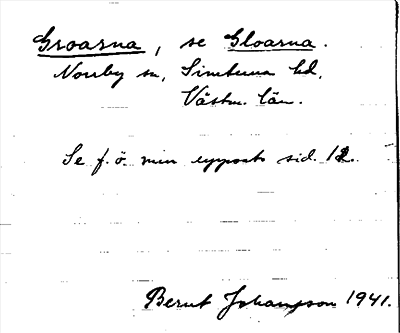 Groarna, se Gloarna.
Norrby sn, Simtuna hd,
Västm. län.
Se f. ö. min uppsats sid. 12.
Bernt Johansson 1941.